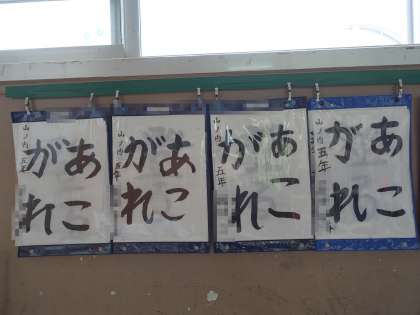 あこ
がれ
山ノ内 五年
あこ
がれ
山ノ内 五年
あこ
がれ
山ノ内 五年
あこ
がれ
山ノ内 五年